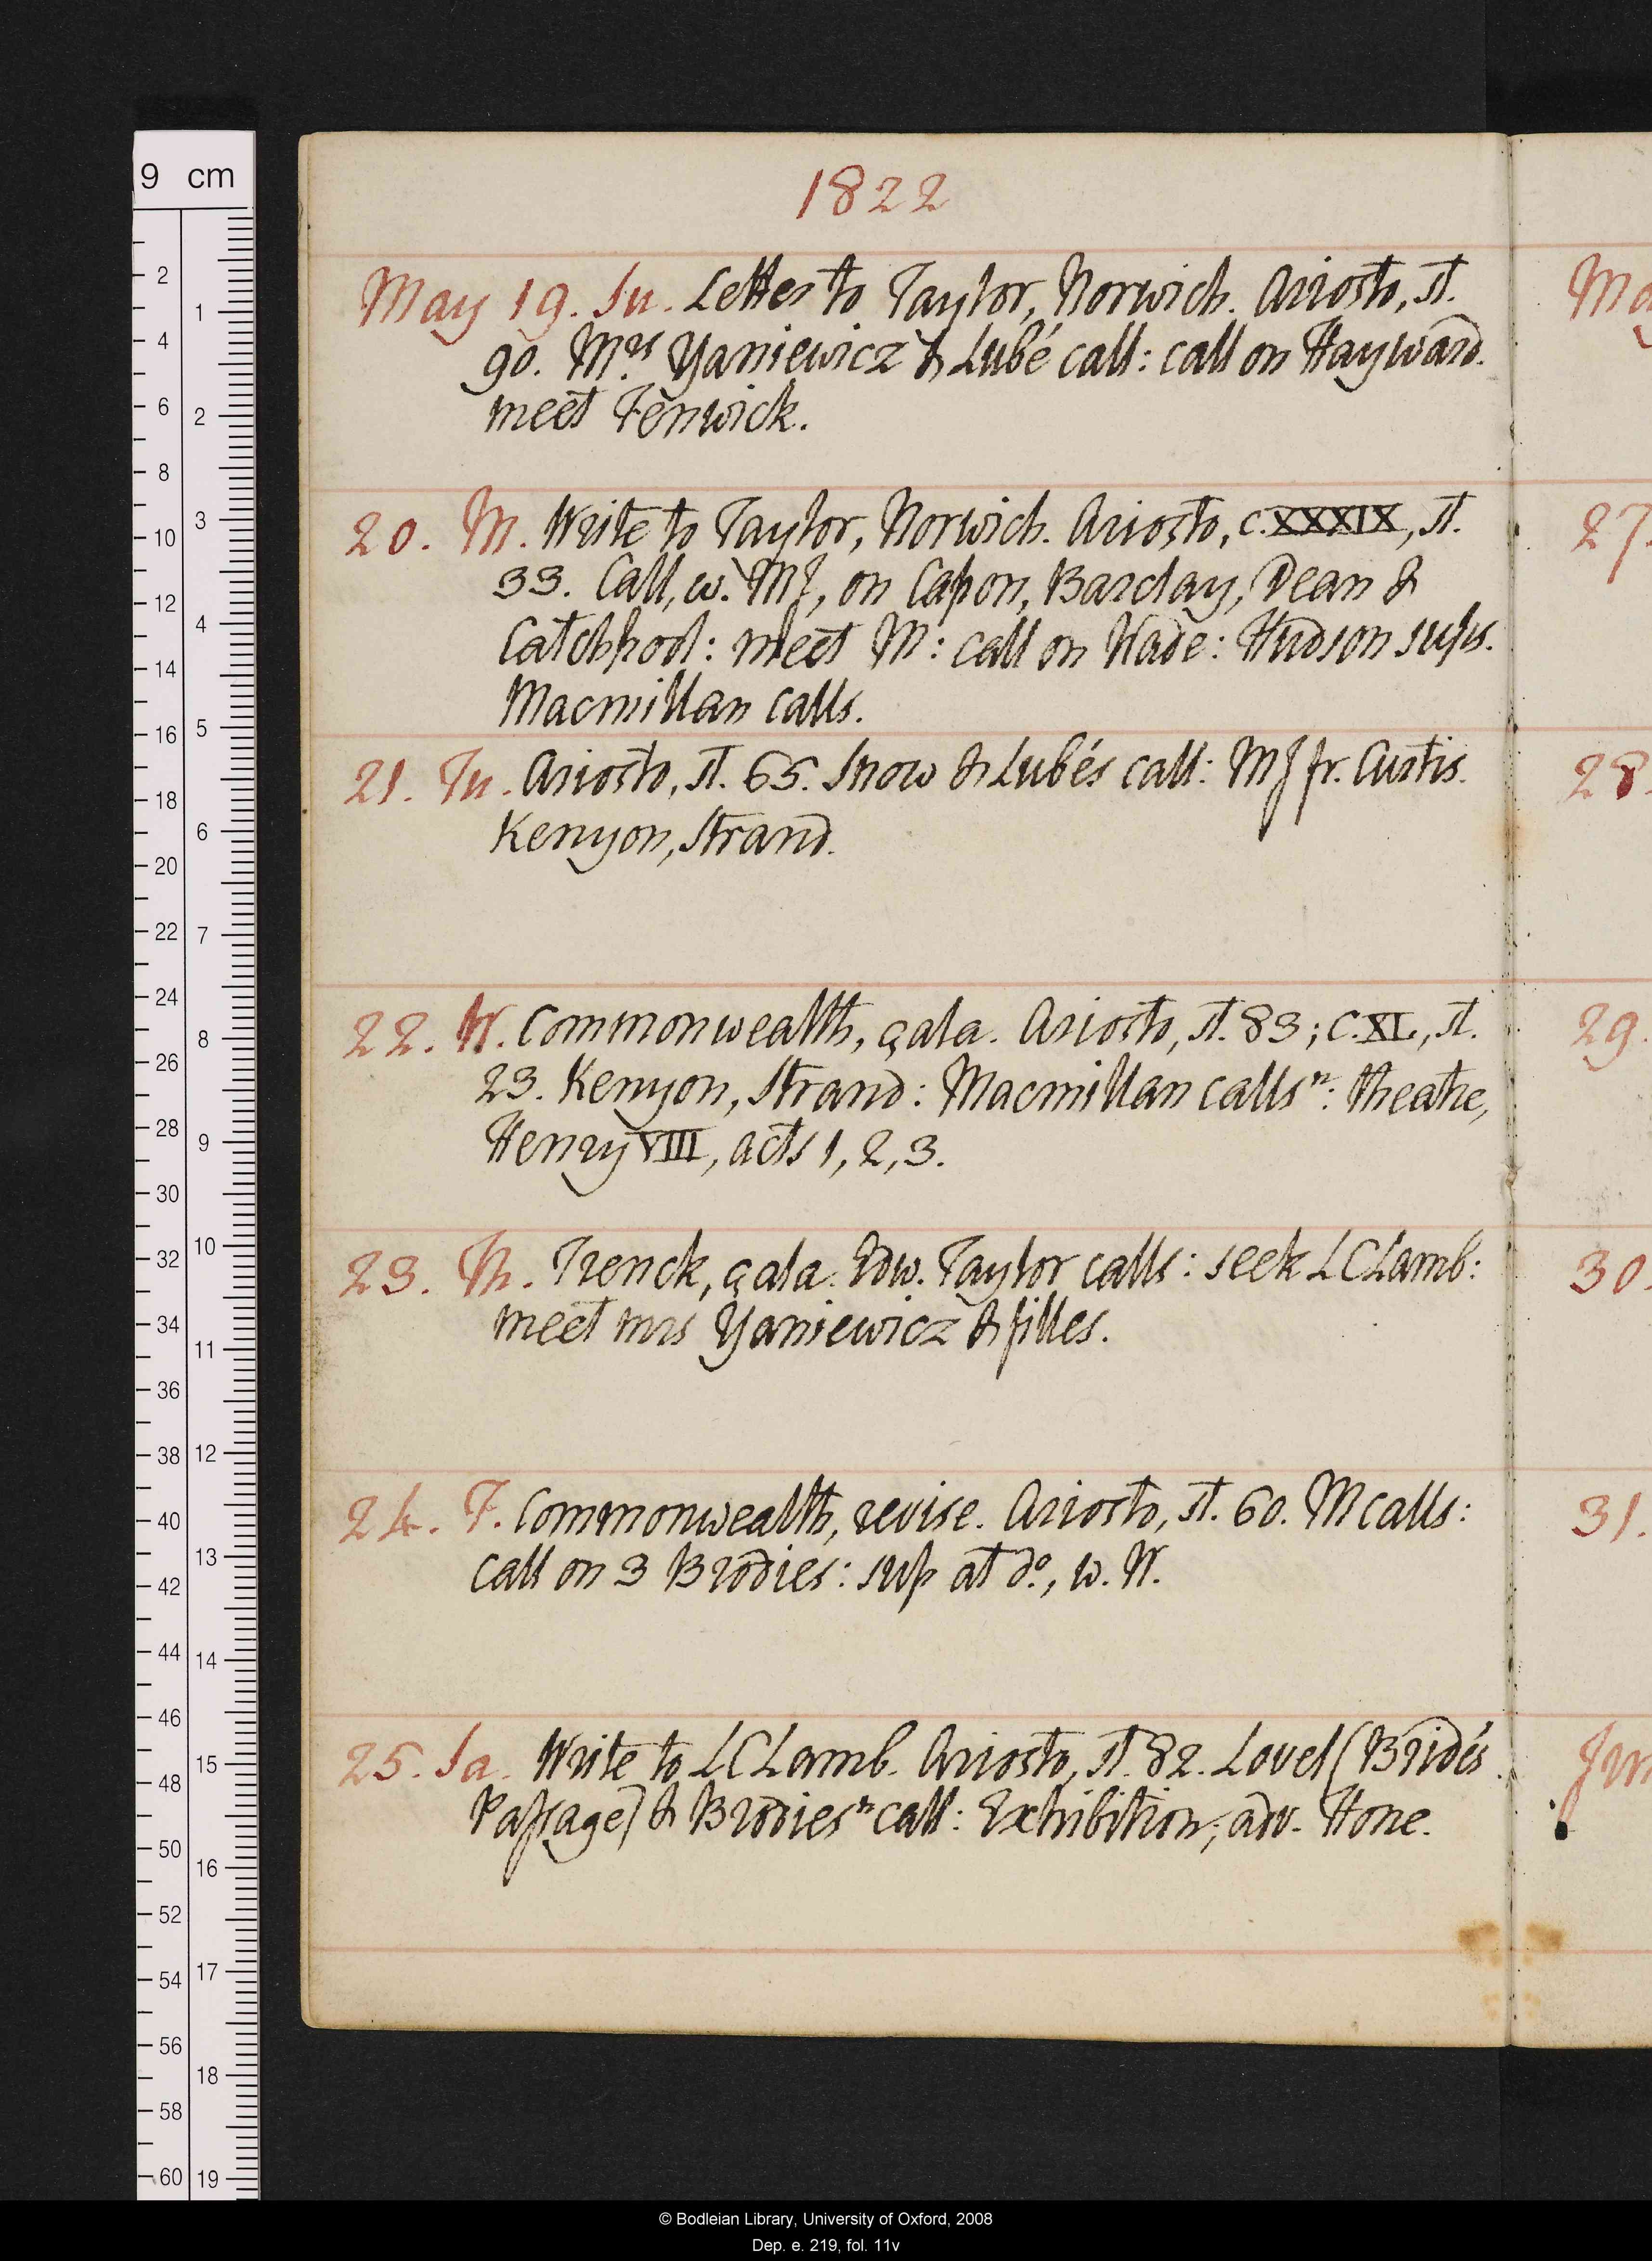 1822
May 19. Su. Letter to Taylor, Norwich. Ariosto, st.
90. Mrs Yaniewicz & Lubé call: call on Hayward.
meet Fenwick.
20. M. Write to Taylor, Norwich. Ariosto, c. XXXIX, st.
33. Call, w. MJ, on Capon, Barclay, Dean &
Catchpool: meet M: call on Wade: Hudson sups.
Macmillan calls.
21. Tu. Ariosto, st. 65. Snow & Lubés call: MJ fr. Curtis.
Kenyon, Strand.
22. W. Commonwealth, çala. Ariosto, st. 83; c. XL, st.
23. Kenyon, Strand: Macmillan calls n: theatre,
Henry VIII, acts 1, 2, 3.
23. Th. Trenck, çala. Edw. Taylor calls: seek LC Lamb:
meet mrs Yaniewicz & filles.
24. F. Commonwealth, revise. Ariosto, st. 60. M calls:
call on 3 Brodies: sup at do, w. W.
25. Sa. Write to LC Lamb. Ariosto, st. 82. Lovel (Bride's
Passage) & Brodies n call: Exhibition; adv. Hone.
Ma
27.
28.
29.
30.
31.
Jun
9 cm
2
4
6
8
10
12
14
16
18
20
22
24
26
28
30
32
34
36
38
40
42
44
46
48
50
52
54
56
58
60
1
2
3
4
5
6
7
8
9
10
11
12
13
14
15
16
17
18
19
© Bodleian Library, University of Oxford, 2008
Dep. e. 219, fol. 11v